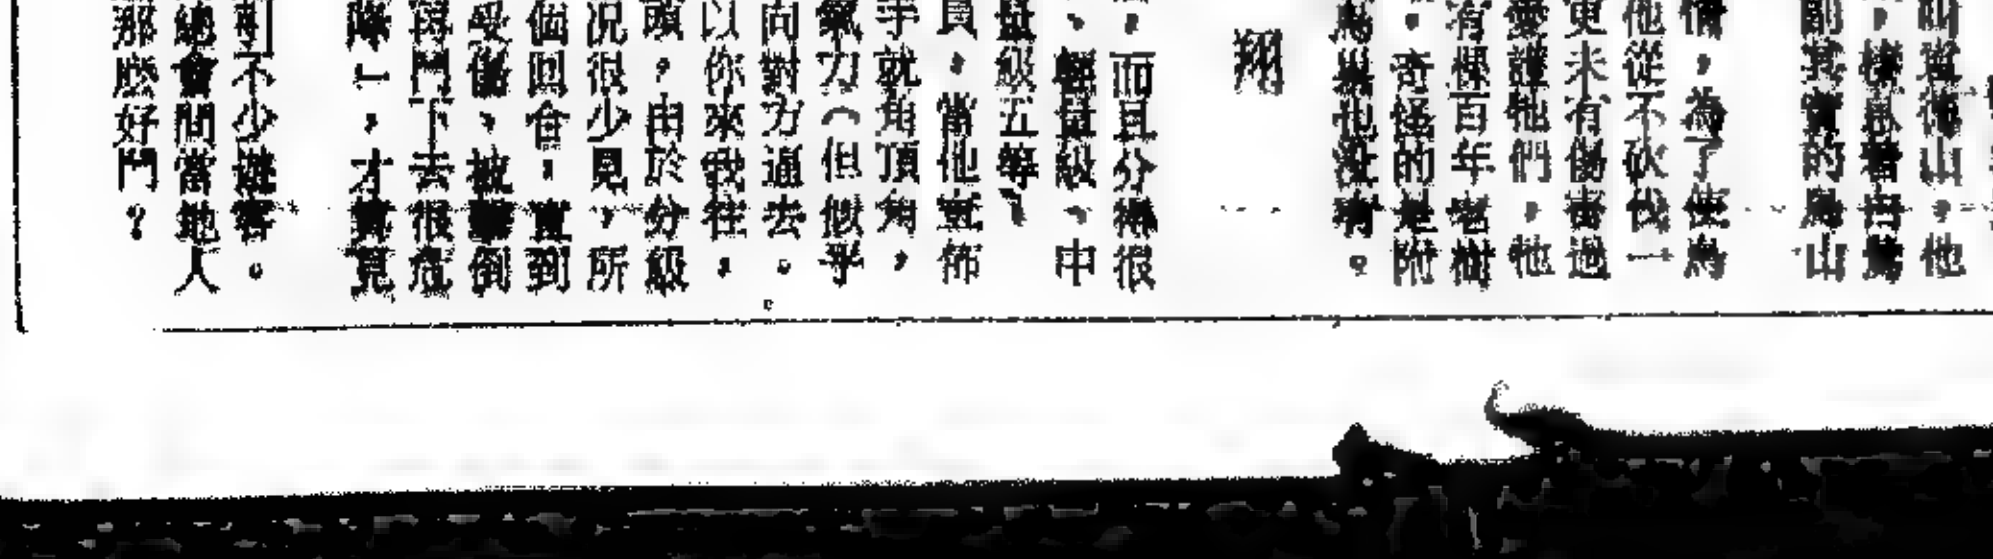 叫道後山，他
，棲息着白鷺
副其實的鳥山
情，為了使鳥
他從不砍伐一
更未有傷害過
愛護牠們，牠
有棵百年老樹
，奇怪的是附
鳥巢也沒有。
翔
，而且分得很
、輕量級、中
量級五等、
員，當他宣佈
手就角頂角，
氣力（但似乎
向對方逼去。
以你來我往，
頭，由於分級
況很少見，所
個回合，直到
受傷、被擊倒
再鬥下去很危
降」，才算見
到不少遊客。
總會問當地人
那麽好鬥？